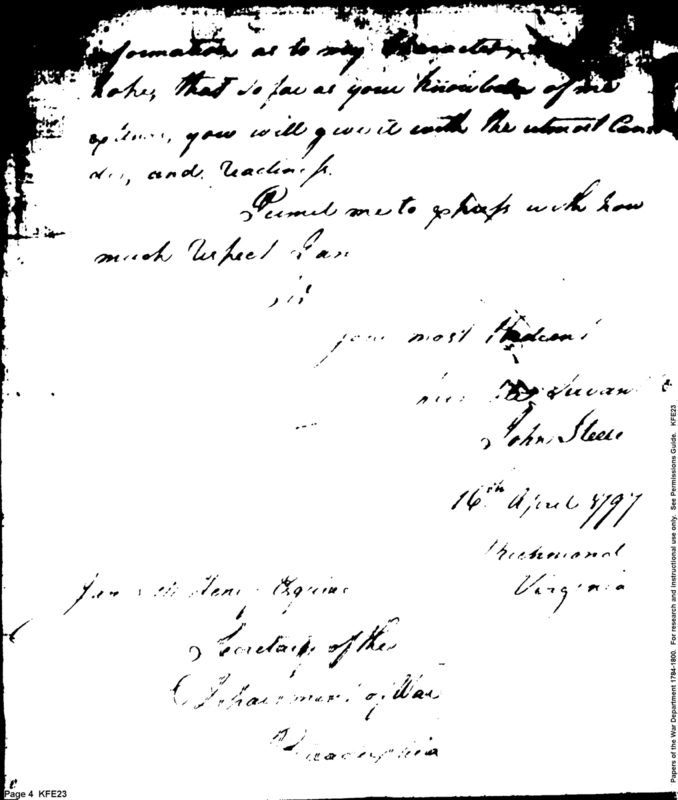 formation as to my Character,
hopes that so far as your knowledge of me
extends, you will give it with the utmost Can-
dor, and readiness.
Permit me to express with how
much respect I am
Sir
your most Obedient
Servant
John Steele
16th April 1797
Richmond
Virginia
James McHenry Esquire
Secretary of the
Department of War
Philadelphia
Page 4 KFE23
Papers of the War Department 1784-1800. For research and instructional use only. See Permissions Guide. KFE23